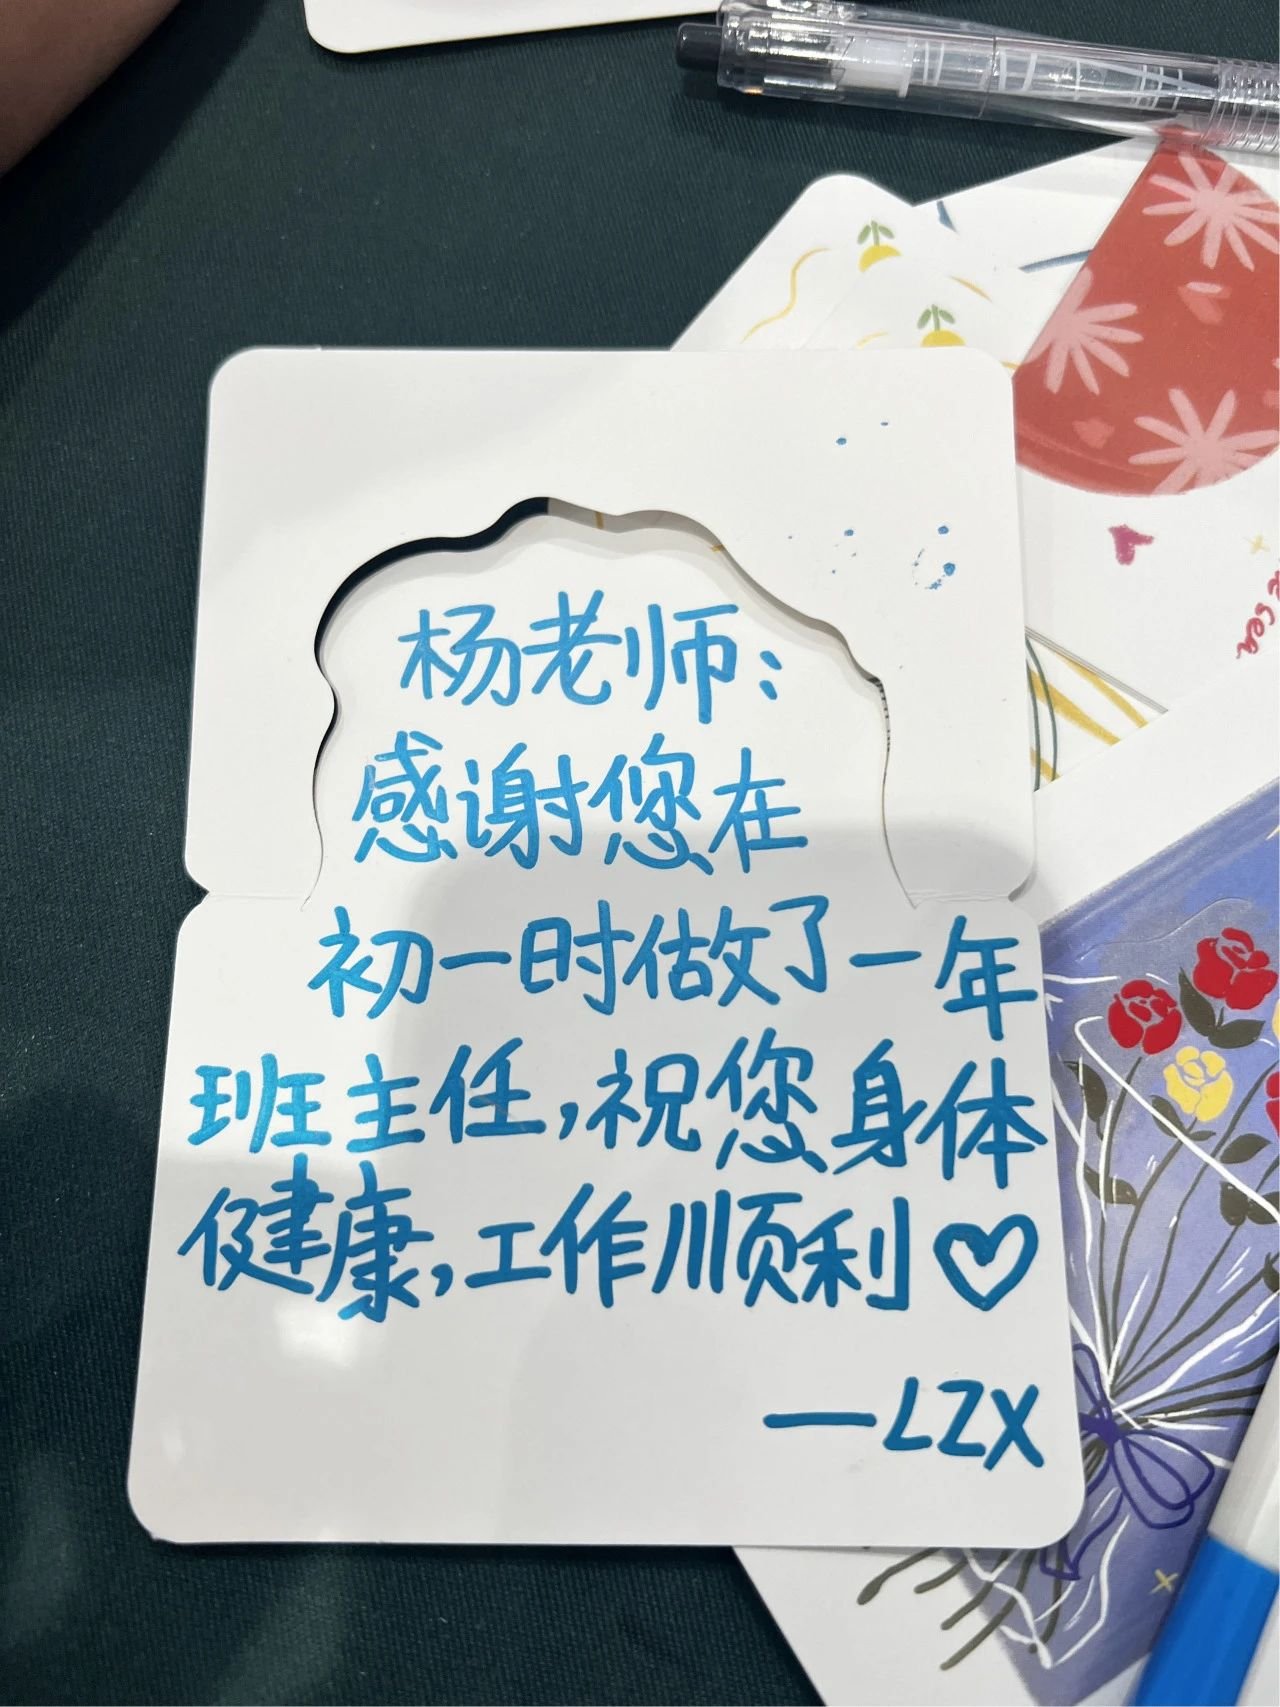 杨老师:
感谢您在
初一时做了一年
班主任,祝您身体
健康,工作顺利♡
—LZX
sea